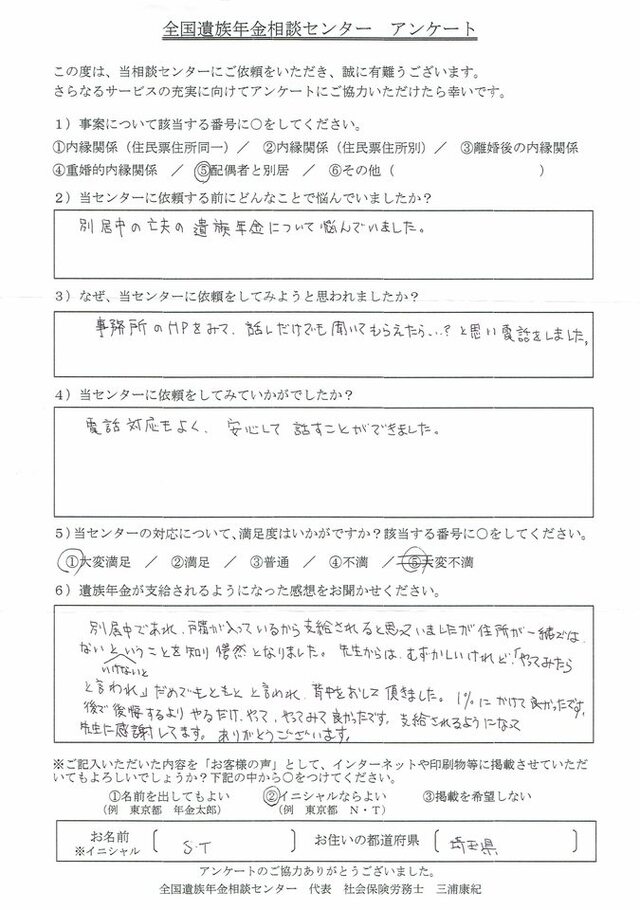 全国遺族年金相談センター　アンケート
この度は、当相談センターにご依頼をいただき、誠に有難うございます。
さらなるサービスの充実に向けてアンケートにご協力いただけたら幸いです。
1）事案について該当する番号に○をしてください。
①内縁関係（住民票住所同一）／　②内縁関係（住民票住所別）／　③離婚後の内縁関係
④重婚的内縁関係　／　⑤配偶者と別居　／　⑥その他（　　　　　　　　　）
2）当センターに依頼する前にどんなことで悩んでいましたか？
別居中の亡夫の遺族年金について悩んでいました。
3）なぜ、当センターに依頼をしてみようと思われましたか？
事務所のHPをみて、話しだけでも聞いてもらえたら…？と思い電話をしました。
4）当センターに依頼をしてみていかがでしたか？
電話対応もよく、安心して話すことができました。
5）当センターの対応について、満足度はいかがですか？該当する番号に○をしてください。
①大変満足　／　②満足　／　③普通　／　④不満　／　⑤大変不満
6）遺族年金が支給されるようになった感想をお聞かせください。
別居中であれ、戸籍が入っているから支給されると思っていましたが住所が一緒では
ないということを知り愕然となりました。先生からは、むずかしいけれど、「やってみたら
いけないと
と言われ」だめでもともと と言われ、背中をおして頂きました。1%にかけて良かったです。
後で後悔するよりやるだけ、やって、やってみて良かったです。支給されるようになって
先生に感謝してます。ありがとうございます。
※ご記入いただいた内容を「お客様の声」として、インターネットや印刷物等に掲載させていただ
いてもよろしいでしょうか？下記の中から○をつけてください。
①名前を出してもよい　②イニシャルならよい　③掲載を希望しない
（例　東京都　年金太郎）　（例　東京都　N・T）
お名前　※イニシャル　〔　S.T　〕　お住いの都道府県　〔　埼玉県　〕
アンケートのご協力ありがとうございました。
全国遺族年金相談センター　代表　社会保険労務士　三浦康紀